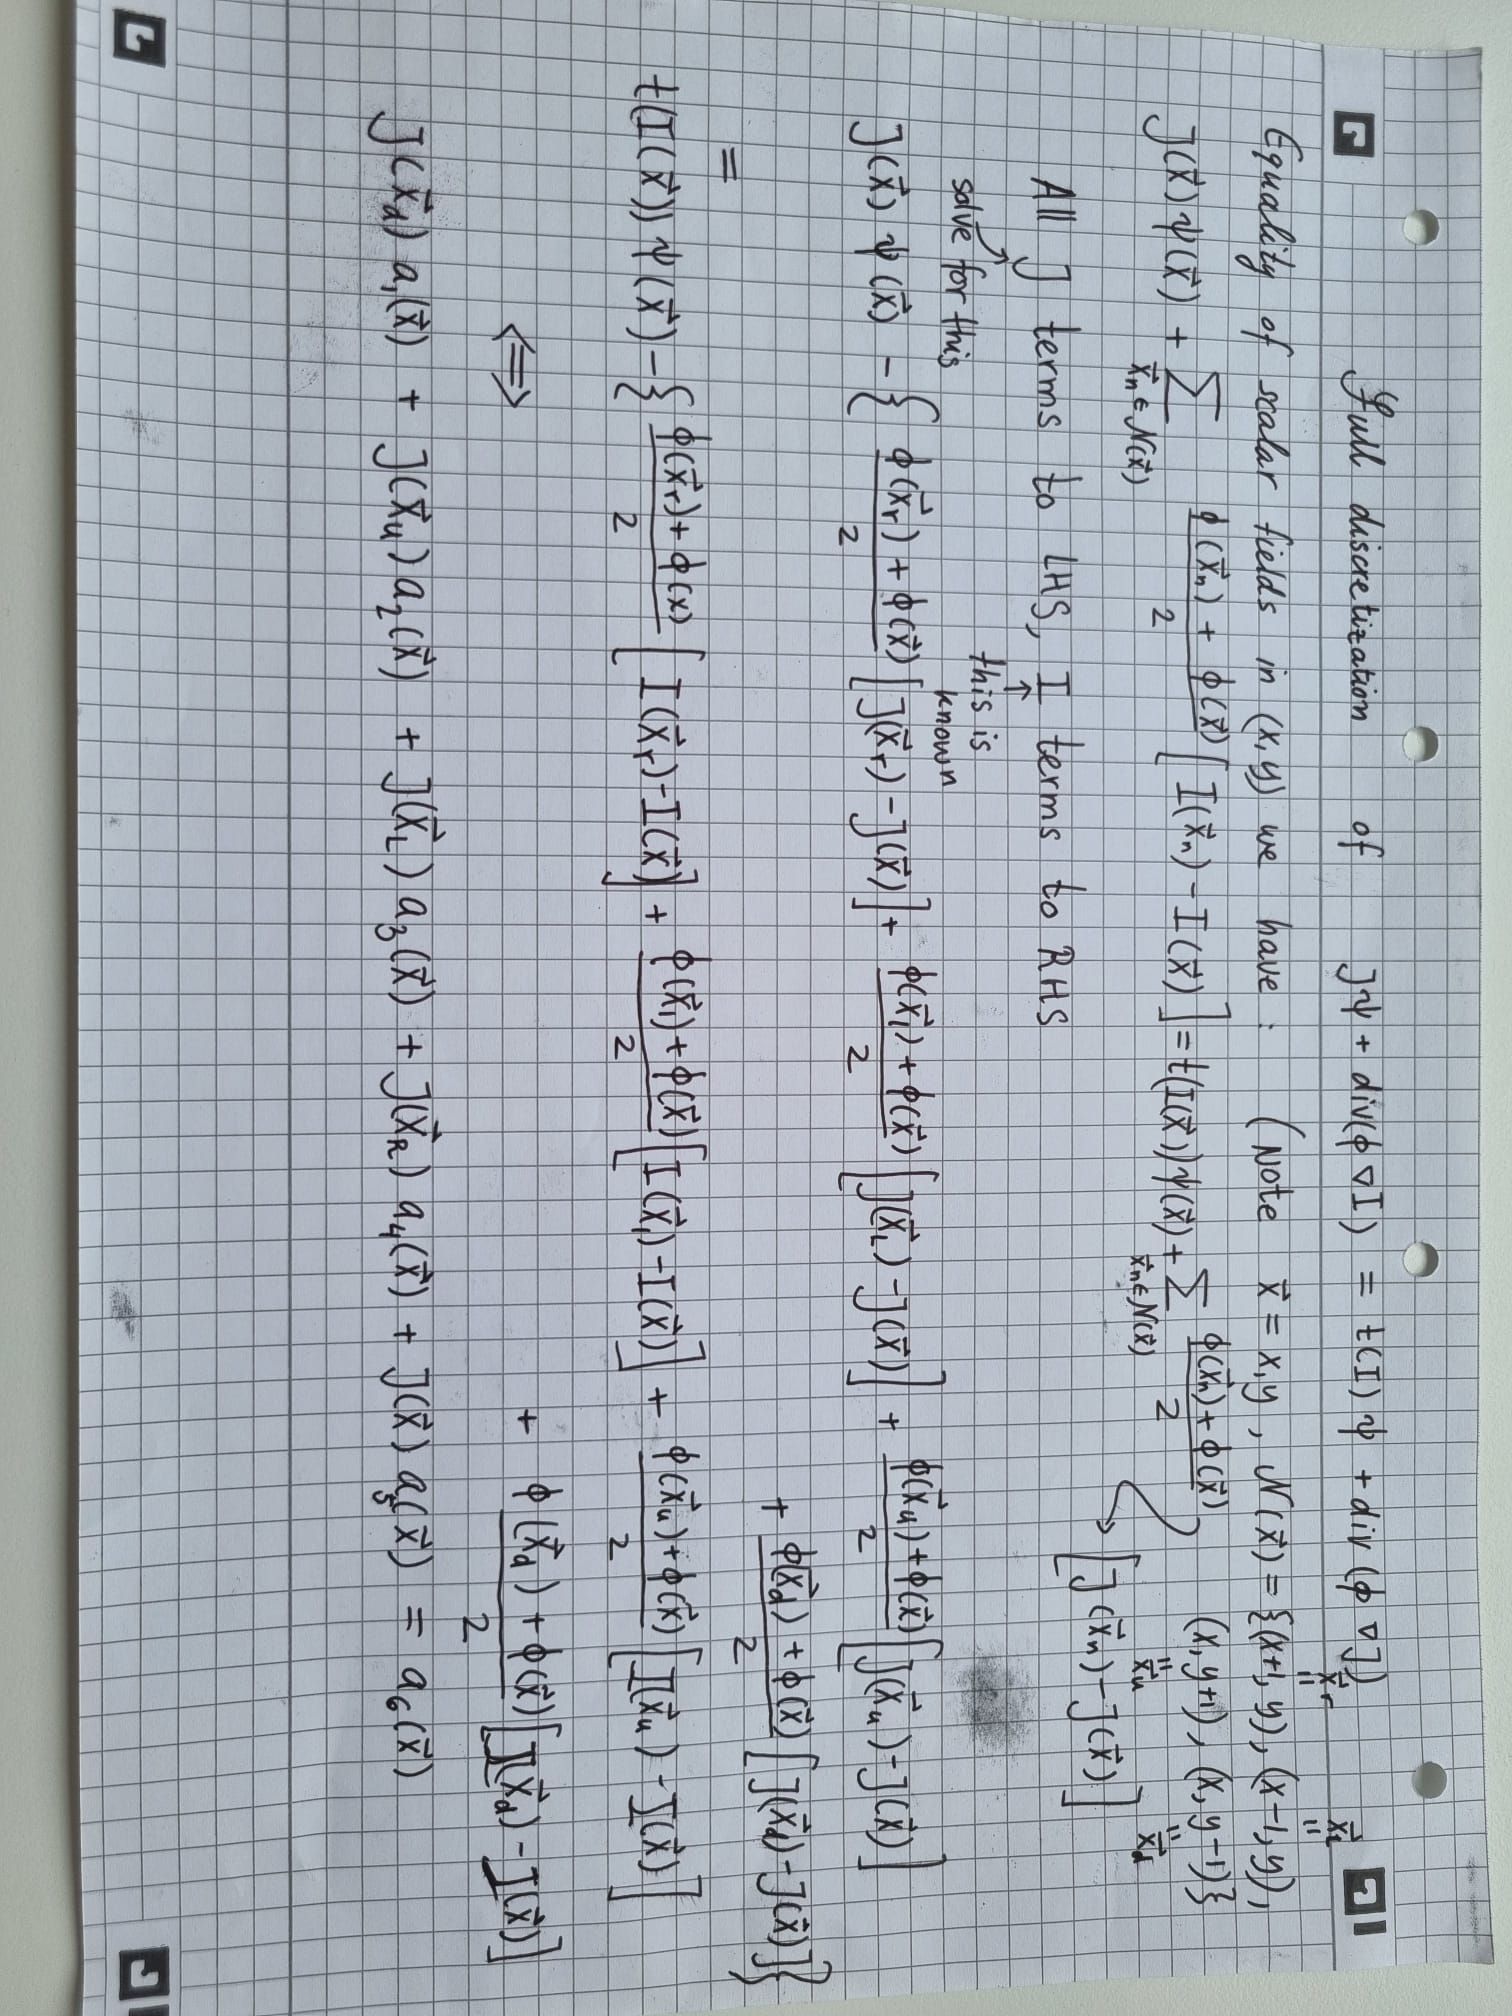 Full discretization of Jψ + div(ϕ∇I) = t(I)ψ + div(ϕ∇J)
Equality of scalar fields in (x,y) we have : (Note x⃗ = x,y , N(x⃗) = {(x+1,y), (x-1,y),
x⃗r = x⃗l =
(x,y+1), (x,y-1)}
= x⃗u = x⃗d
J(x⃗)ψ(x⃗) + Σ x⃗n∈N(x⃗) (ϕ(x⃗n) + ϕ(x⃗))/2 [I(x⃗n) - I(x⃗)] = t(I(x⃗))ψ(x⃗) + Σ x⃗n∈N(x⃗) (ϕ(x⃗n) + ϕ(x⃗))/2
[J(x⃗n) - J(x⃗)]
All J terms to LHS, I terms to RHS
solve for this this is known
J(x⃗) ψ(x⃗) - { (ϕ(x⃗r) + ϕ(x⃗))/2 [J(x⃗r) - J(x⃗)] + (ϕ(x⃗l) + ϕ(x⃗))/2 [J(x⃗L) - J(x⃗)] + (ϕ(x⃗u) + ϕ(x⃗))/2 [J(x⃗u) - J(x⃗)]
+ (ϕ(x⃗d) + ϕ(x⃗))/2 [J(x⃗d) - J(x⃗)]}
=
t(I(x⃗)) ψ(x⃗) - { (ϕ(x⃗r) + ϕ(x))/2 [I(x⃗r) - I(x⃗)] + (ϕ(x⃗l) + ϕ(x⃗))/2 [I(x⃗l) - I(x⃗)] + (ϕ(x⃗u) + ϕ(x⃗))/2 [I(x⃗u) - I(x⃗)]
+ (ϕ(x⃗d) + ϕ(x⃗))/2 [I(x⃗d) - I(x⃗)]
⟺
J(x⃗d) a₁(x⃗) + J(x⃗u) a₂(x⃗) + J(x⃗L) a₃(x⃗) + J(x⃗R) a₄(x⃗) + J(x⃗) a₅(x⃗) = a₆(x⃗)